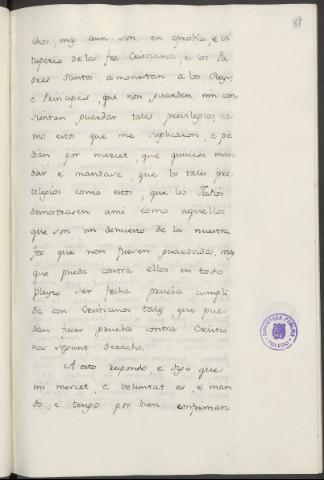 88
chos, mas aun son en oprobio, e vi
tuperio de la fee Cristiana e los Pa
dres Santos amonestan a los Reyes,
e Principes, que non guarden, nin con
sientan guardar tales previlegios, co
mo estos que me suplicaron, e pe
dian por merced, que quisiese man
dar e mandase, que los tales pre
vilegios como estos, que los Judios
demostrasen ami como aquellos
que son en denuesto de la nuestra
fee que non fuesen guardados, mas
que pueda contra ellos en todo
pleyto ser fecha prueba cumpli
da con Cristianos tales que pue
dan facer prueba contra Cristia
nos segunt derecho.
A esto respondo e digo que
mi merced, e voluntat es e man
do, e tengo por bien confirman
BIBLIOTECA PUBLICA
TOLEDO